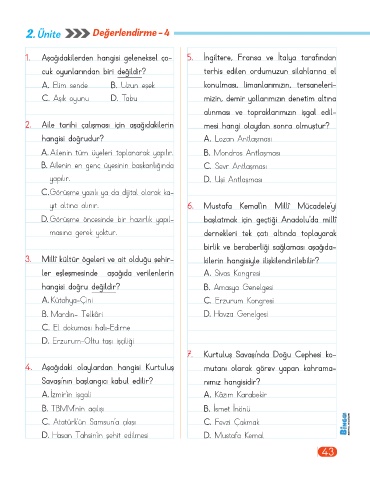 2. Ünite
Değerlendirme - 4
1. Aşağıdakilerden hangisi geleneksel ço-
cuk oyunlarından biri değildir?
A. Elim sende B. Uzun eşek
C. Aşık oyunu D. Tabu
2. Aile tarihi çalışması için aşağıdakilerin
hangisi doğrudur?
A. Ailenin tüm üyeleri toplanarak yapılır.
B. Ailenin en genç üyesinin başkanlığında
yapılır.
C. Görüşme yazılı ya da dijital olarak ka-
yıt altına alınır.
D. Görüşme öncesinde bir hazırlık yapıl-
masına gerek yoktur.
3. Millî kültür ögeleri ve ait olduğu şehir-
ler eşleşmesinde aşağıda verilenlerin
hangisi doğru değildir?
A. Kütahya-Çini
B. Mardin- Telkâri
C. El dokuması halı-Edirne
D. Erzurum-Oltu taşı işçiliği
4. Aşağıdaki olaylardan hangisi Kurtuluş
Savaşı'nın başlangıcı kabul edilir?
A. İzmir'in işgali
B. TBMM'nin açılışı
C. Atatürk'ün Samsun'a çıkışı
D. Hasan Tahsin'in şehit edilmesi
5. İngiltere, Fransa ve İtalya tarafından
terhis edilen ordumuzun silahlarına el
konulması, limanlarımızın, tersaneleri-
mizin, demir yollarımızın denetim altına
alınması ve topraklarımızın işgal edil-
mesi hangi olaydan sonra olmuştur?
A. Lozan Antlaşması
B. Mondros Antlaşması
C. Sevr Antlaşması
D. Uşi Antlaşması
6. Mustafa Kemal'in Millî Mücadele'yi
başlatmak için geçtiği Anadolu'da millî
dernekleri tek çatı altında toplayarak
birlik ve beraberliği sağlaması aşağıda-
kilerin hangisiyle ilişkilendirilebilir?
A. Sivas Kongresi
B. Amasya Genelgesi
C. Erzurum Kongresi
D. Havza Genelgesi
7. Kurtuluş Savaşı'nda Doğu Cephesi ko-
mutanı olarak görev yapan kahrama-
nımız hangisidir?
A. Kâzım Karabekir
B. İsmet İnönü
C. Fevzi Çakmak
D. Mustafa Kemal
BİNGO
43